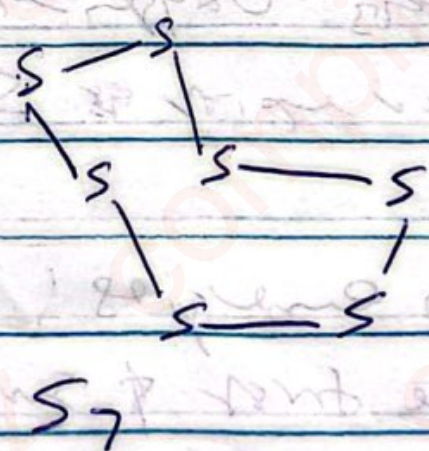 S S
S S S
S S
S7